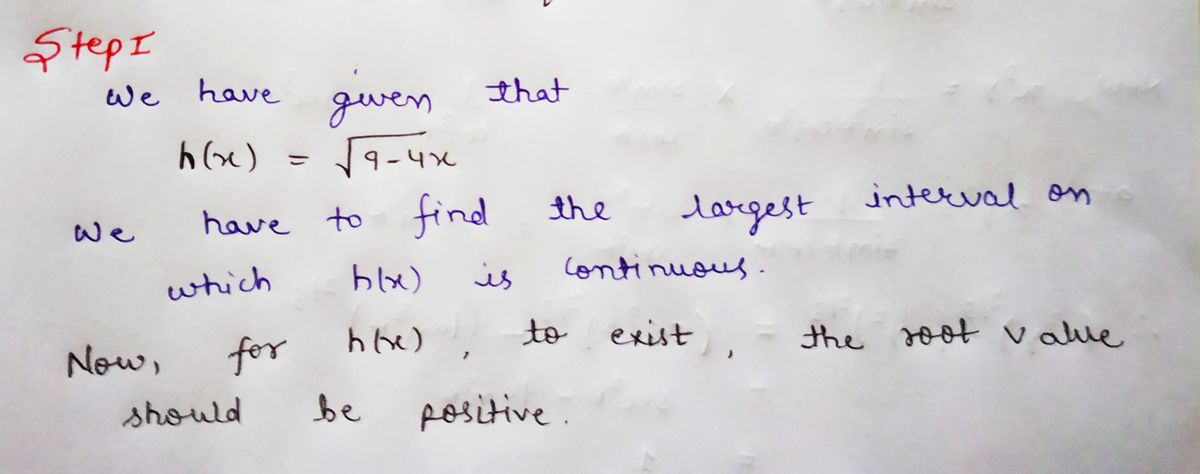 Step I
We have given that
h(x) = √9-4x
We have to find the largest interval on
which h(x) is continuous.
Now, for h(x), to exist, the root value
should be positive.